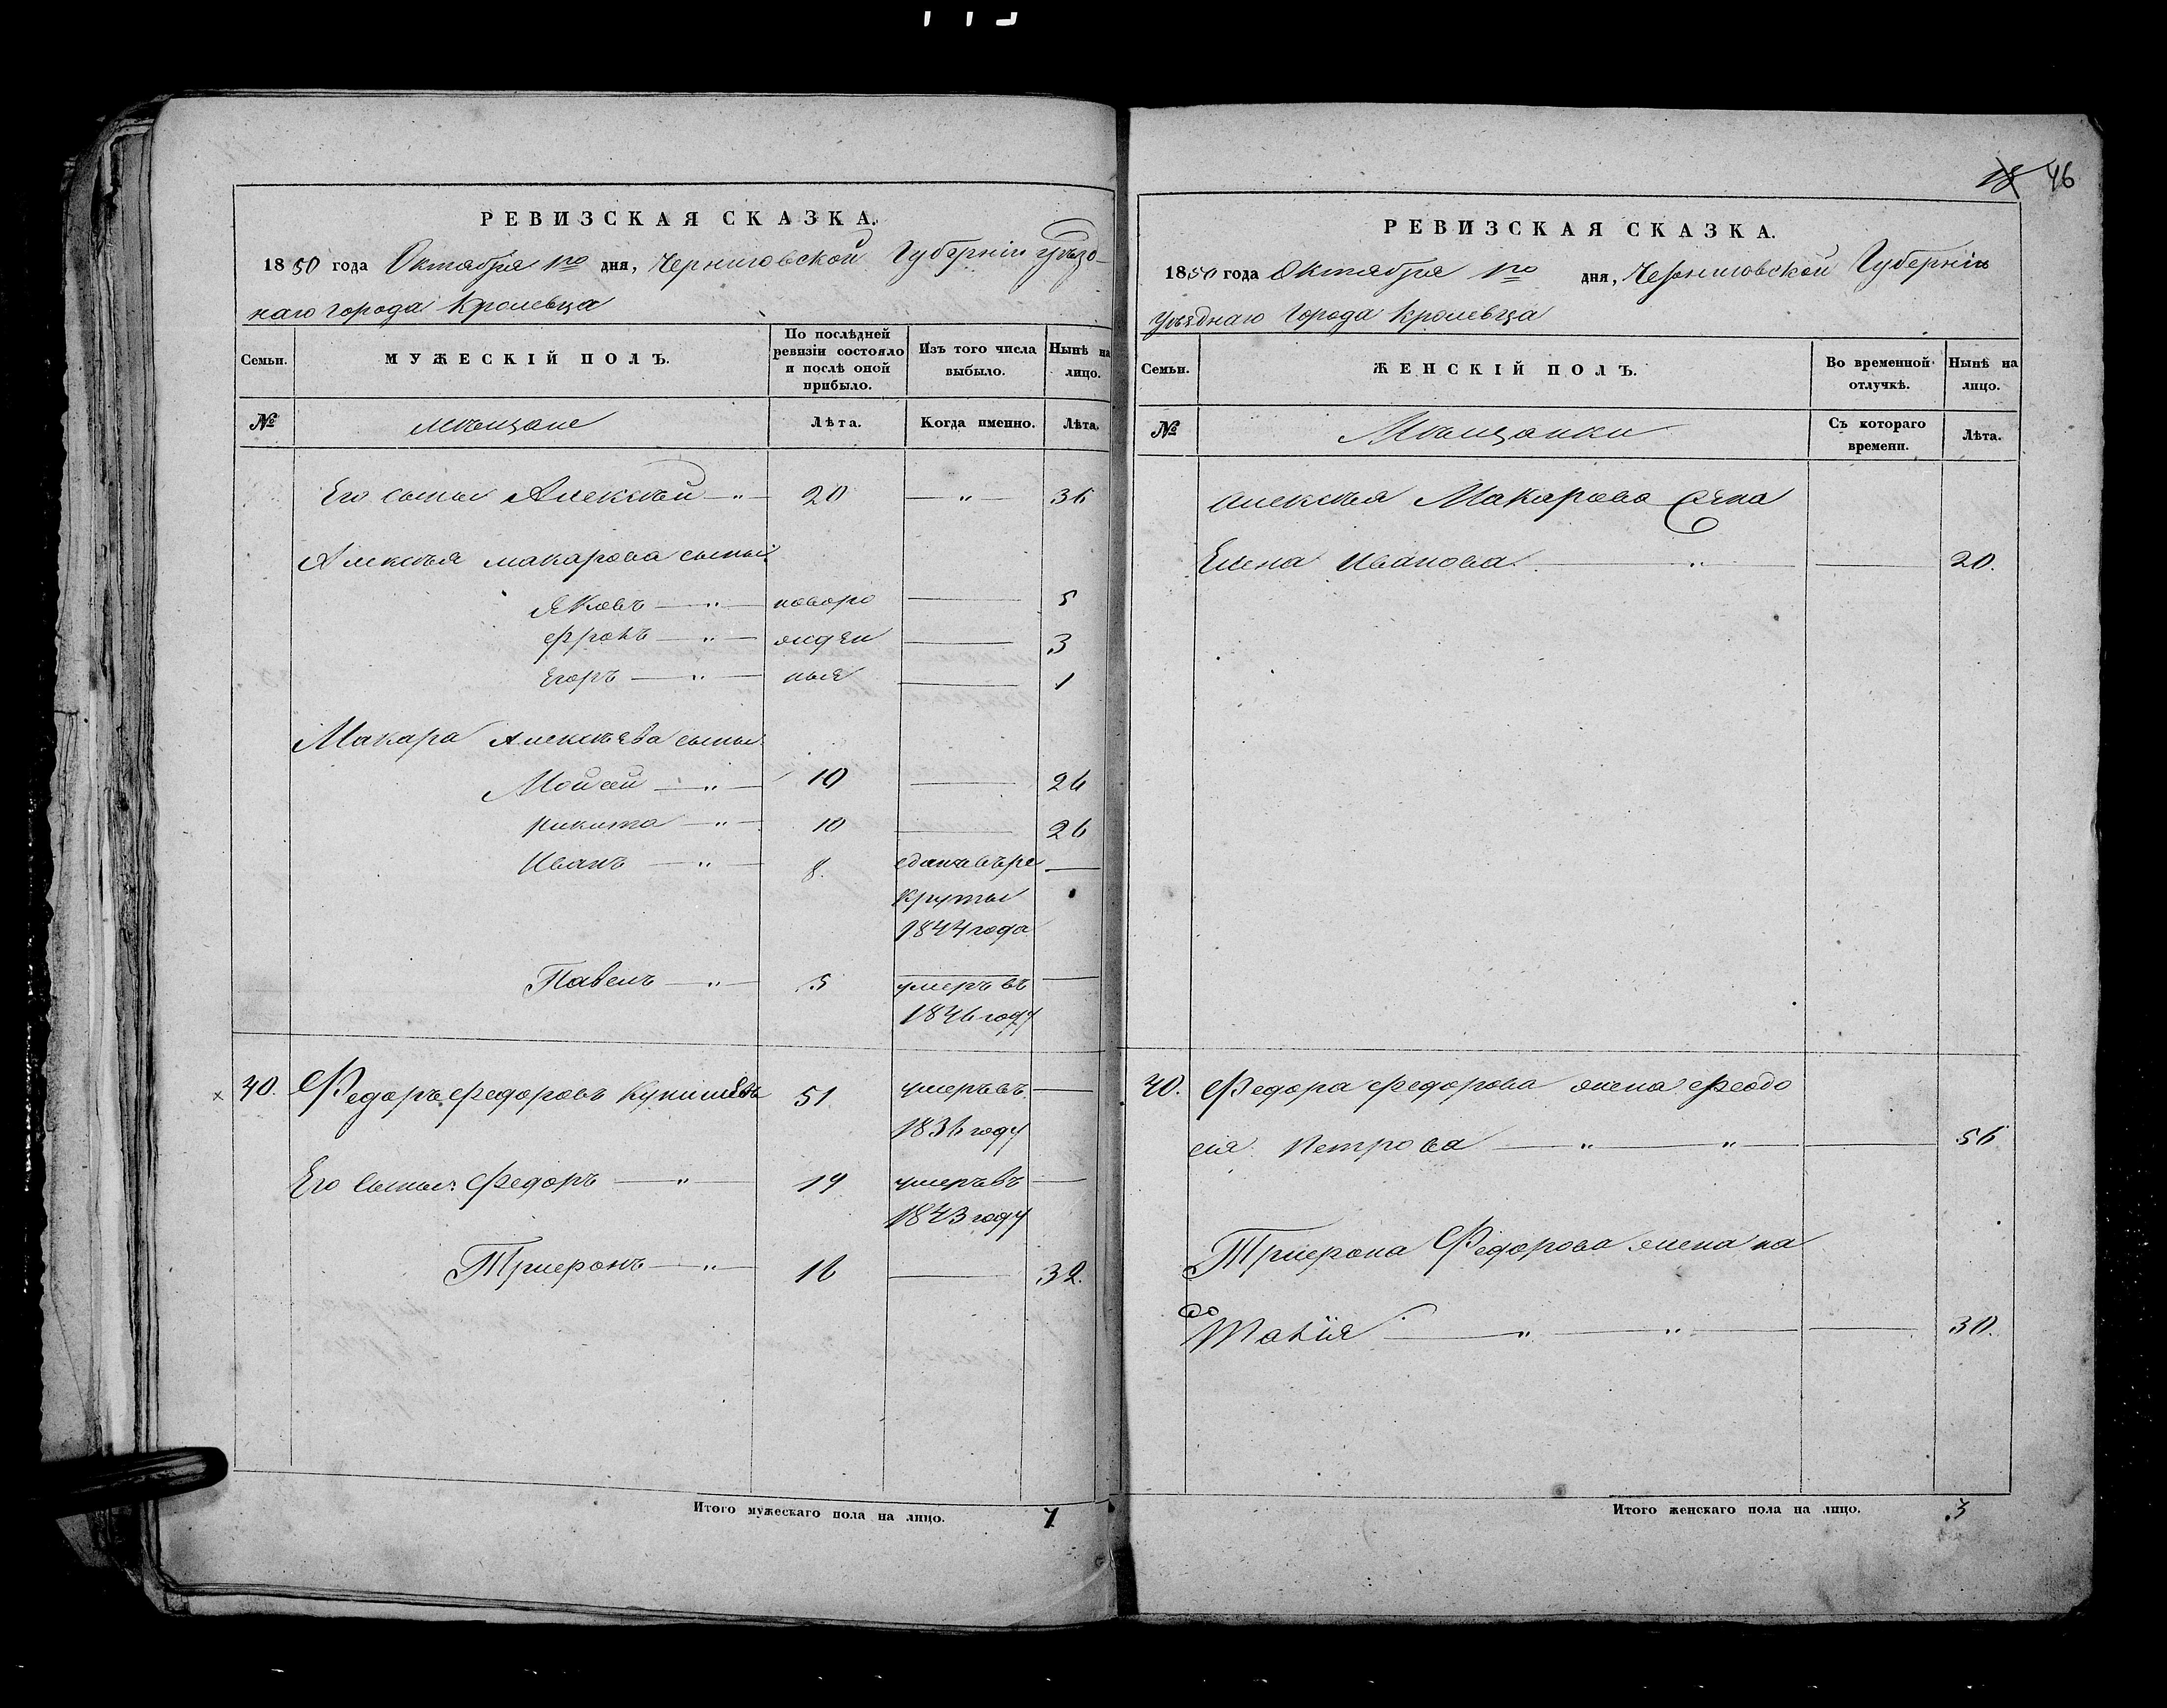 РЕВИЗСКАЯ СКАЗКА.
1850 года Октября 1го дня, Черниговской Губерніи уѣзд-
наго города Кролевца
Семьи. МУЖЕСКІЙ ПОЛЪ. По послѣдней ревизіи состояло и послѣ оной прибыло. Изъ того числа выбыло. Нынѣ на лицо.
№ Мѣщане Лѣта. Когда именно. Лѣта.
Его сынъ Алексѣй — " — 20 — " — 36
Алексѣя Макарова сыны:
Яковъ — " — новоро — 5
— " — жден — 3
Егоръ — " — ныя — 1
Макара Алексѣева сыны:
Мойсей — " — 10 — 26
Никита — " — 10 — 26
Иванъ — " — 8. сданъ въ ре —
круты
1844 года
Павелъ — " — 5 умеръ въ —
1846 году
40. Федоръ Федоровъ 51 умеръ въ —
1836 году
Его сыны: Федоръ — " — 19 умеръ въ —
1843 году
Трифонъ — " — 16 — 32.
Итого мужескаго пола на лицо. 7
18 46
РЕВИЗСКАЯ СКАЗКА.
1850 года Октября 1го дня, Черниговской Губерніи
Уѣзднаго Города Кролевца
Семьи. ЖЕНСКІЙ ПОЛЪ. Во временной отлучкѣ. Нынѣ на лицо.
№ Мѣщанки Съ котораго времени. Лѣта.
Алексѣя Макарова жена
Елена Иванова — " — — 20.
40. Федора Федорова жена Феодо
сія Петрова — " — " — — 56
Трифона Федорова жена На
талія — " — " — — 30.
Итого женскаго пола на лицо. 3